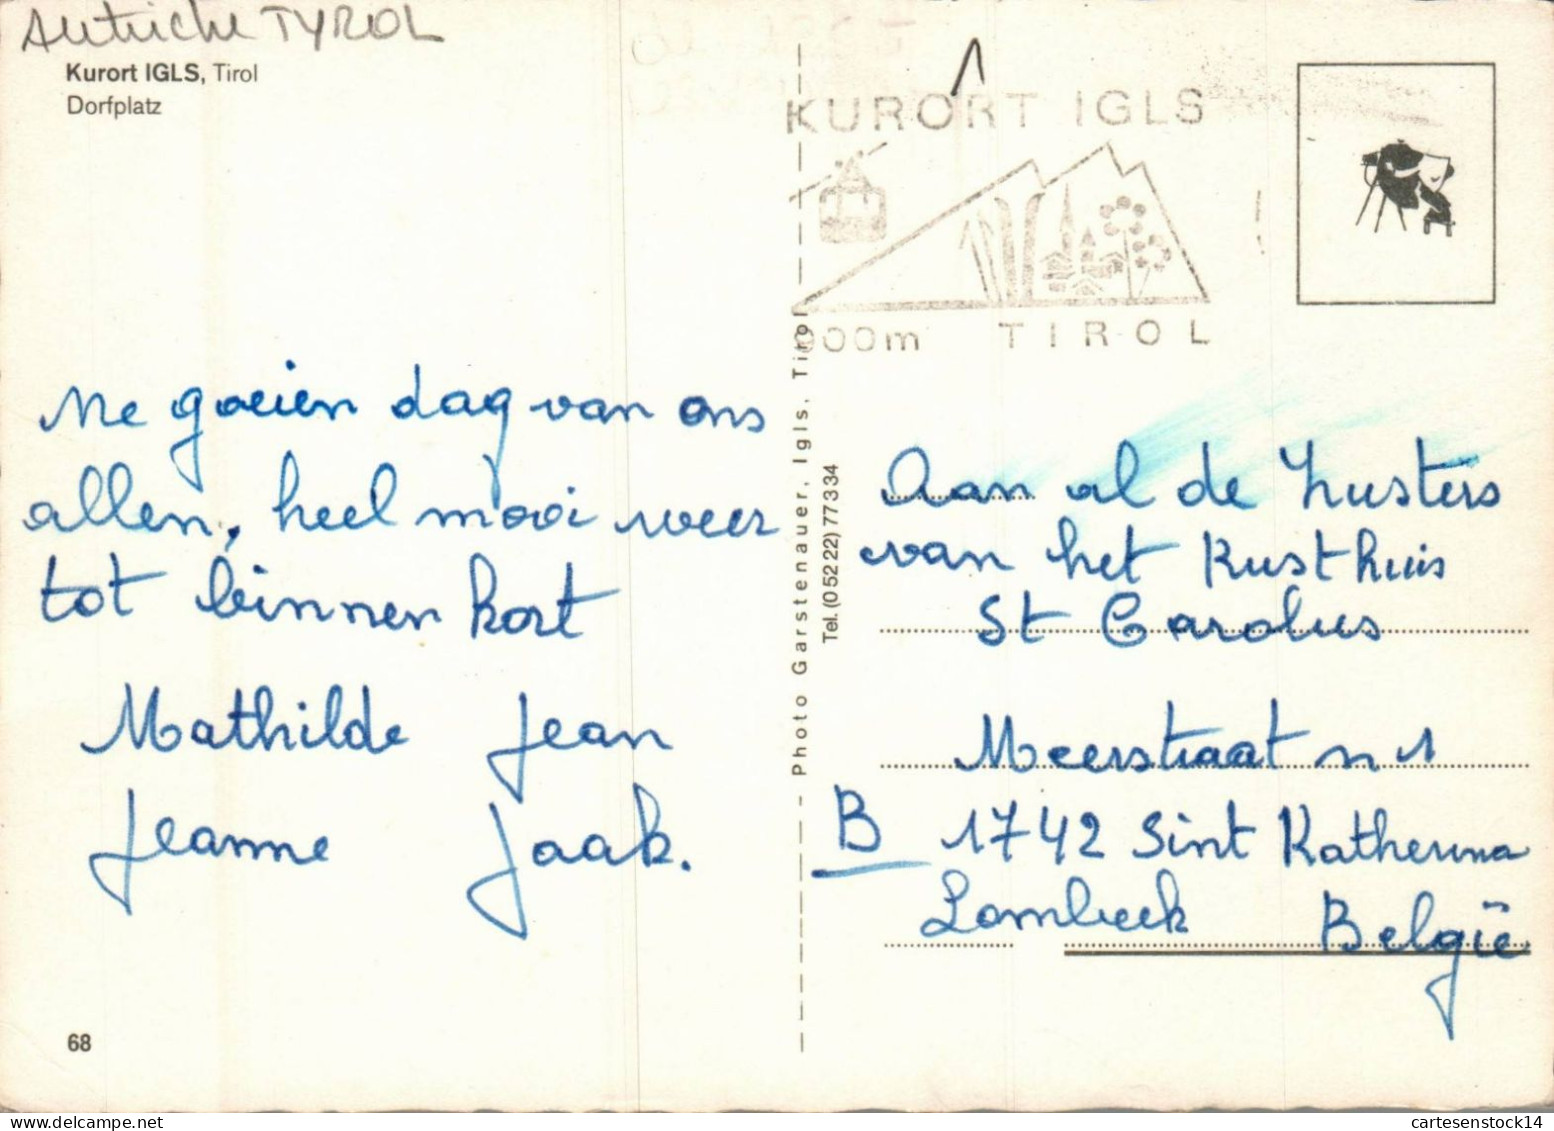 Autriche TYROL
Kurort IGLS, Tirol
Dorfplatz
KURORT IGLS
900m TIROL
Me goeien dag van ons
allen, heel mooi weer
tot binnen kort
Mathilde Jean
Jeanne Jaak.
68
Photo Garstenauer, Igls, Tirol
Tel. (05222) 77334
Aan al de zusters
van het Rusthuis
St Carolus
Meerstraat n 1
B 1742 Sint Katherina
Lombeek België
cartesenstock14